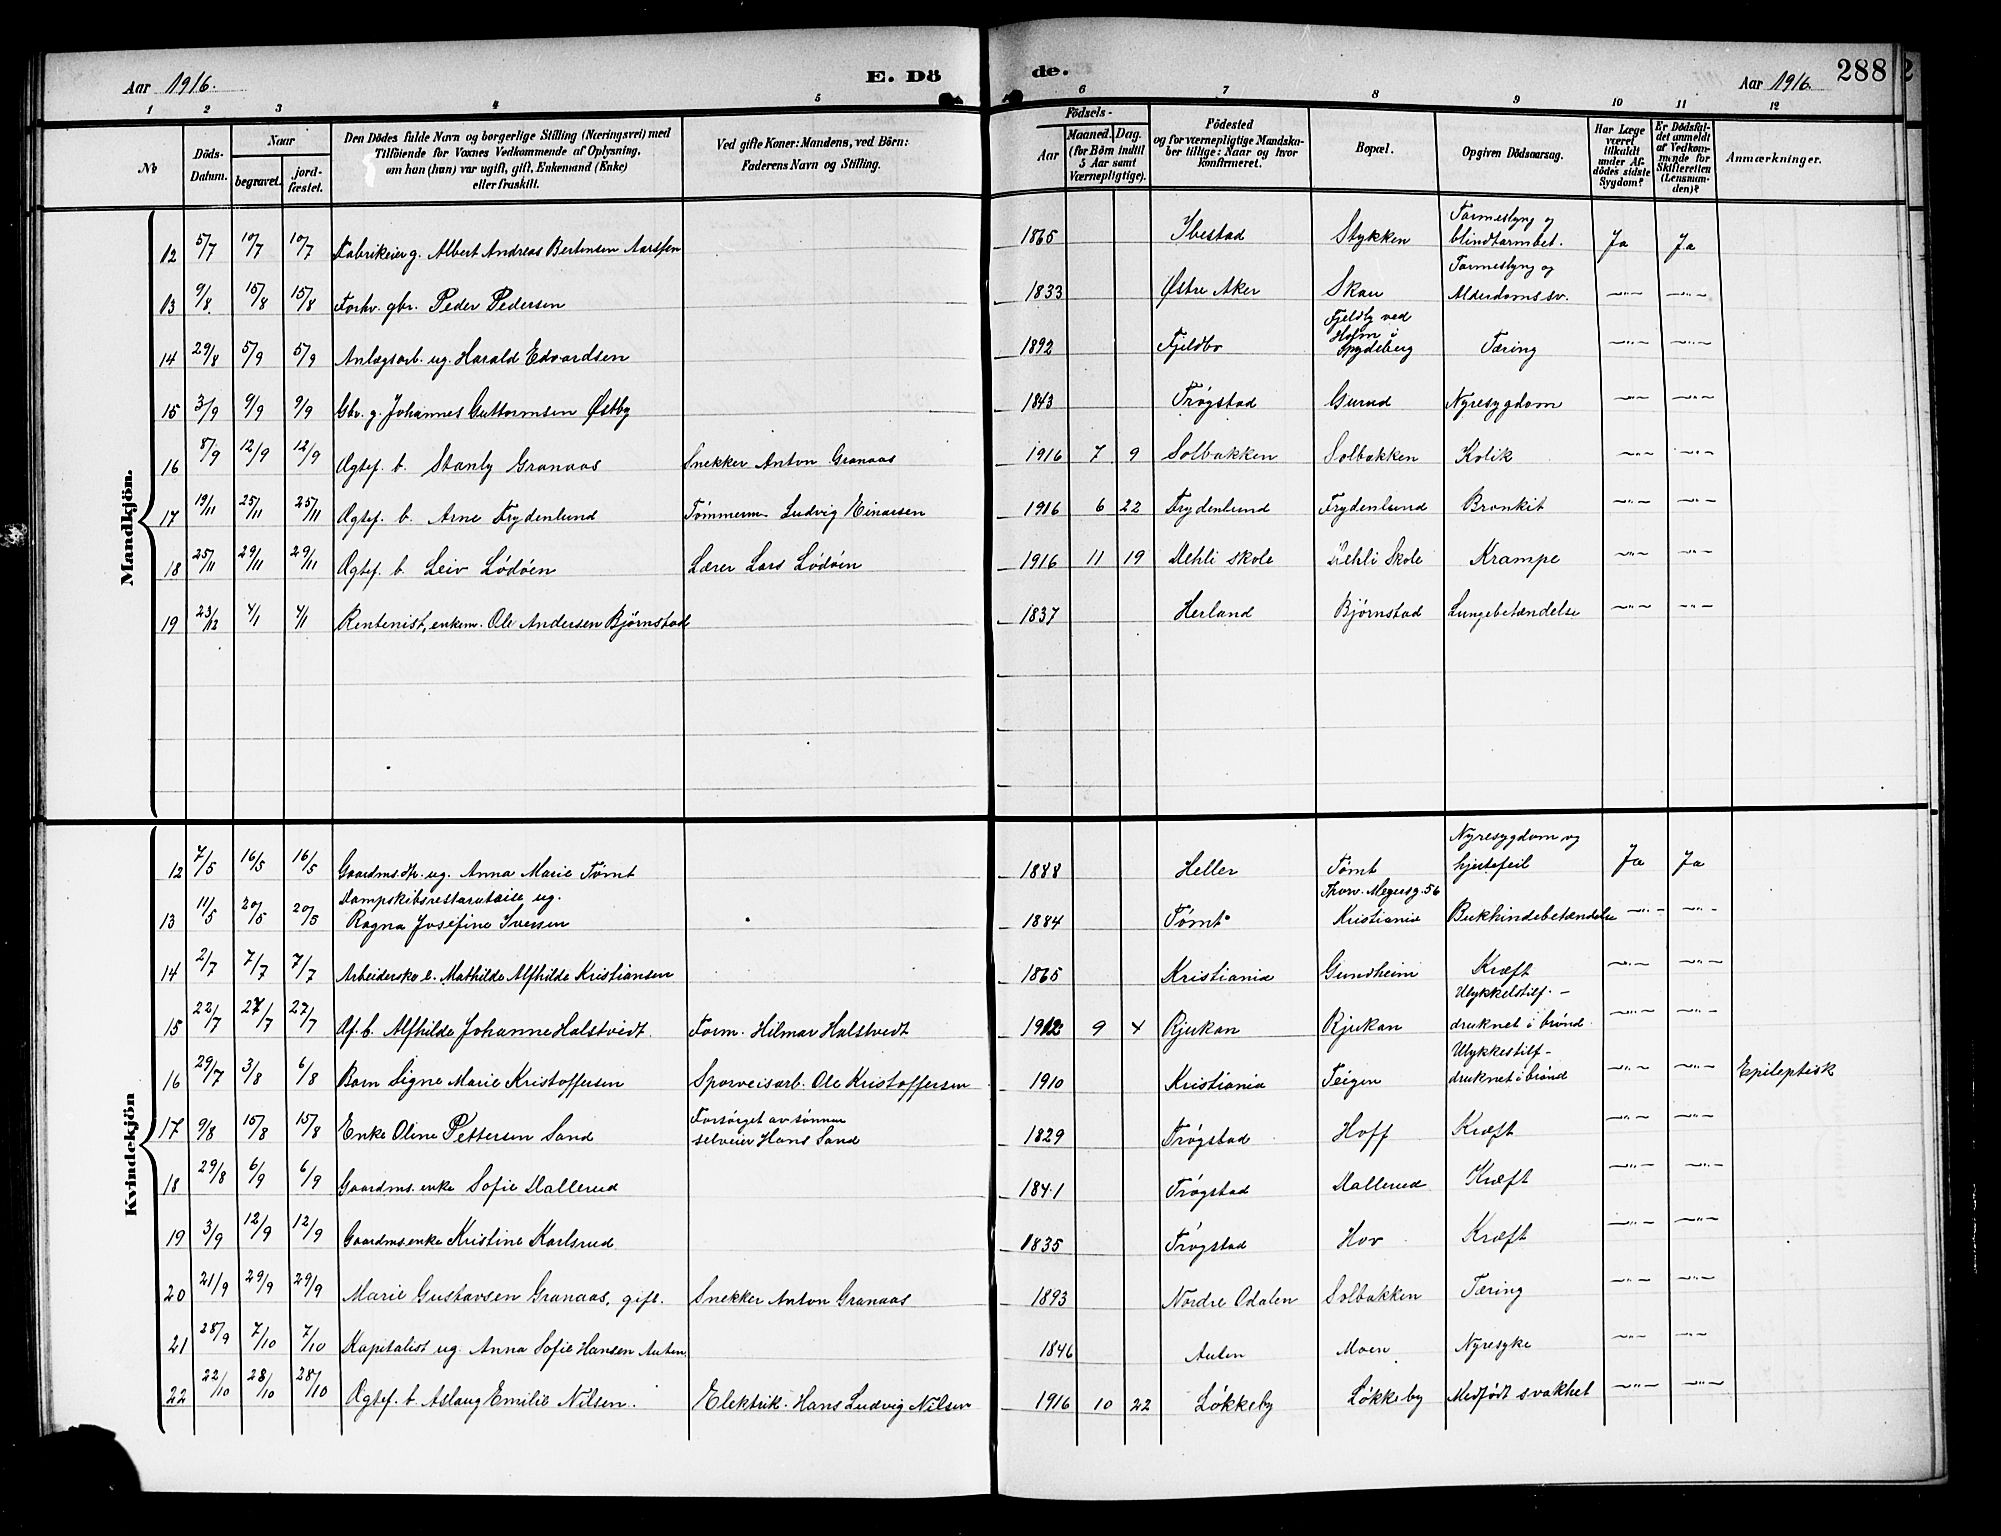 Aar 1916.
E. Dö
de.
Aar 1916.
288
1 2 3 4 5 6 7 8 9 10 11 12
No
Döds-Datum.
Naar
begravet.
jord-fæstet.
Den Dödes fulde Navn og borgerlige Stilling (Næringsvei) med
Tilföiende for Voxnes Vedkommende af Oplysning,
om han (hun) var ugift, gift, Enkemand (Enke)
eller fraskilt.
Ved gifte Koner: Mandens, ved Börn:
Faderens Navn og Stilling.
Födsels-
Aar
Maaned. Dag.
(for Börn indtil
5 Aar samt
Værnepligtige).
Födested
og for værnepligtige Mandska-
ber tillige: Naar og hvor
konfirmeret.
Bopæl.
Opgiven Dödsaarsag.
Har Læge
været
tilkaldt
under Af-
dödes sidste
Sygdom?
Er Dödsfal-
det anmeldt
af Vedkom-
mende for
Skifteretten
(Lensman-
den)?
Anmærkninger.
Mandkjön.
12 5/7 10/7 10/7 Fabrikeier g. Albert Andreas Bertensen Aarssen 1865 Ibestad Stykken Tarmeslyng og blindtarmbet. Ja Ja
13 9/8. 15/8 15/8 Forhv. gbr. Peder Pedersen 1833 Østre Aker Skau Tarmeslyng og Alderdomssv. —"— —"—
14 29/8 5/9 5/9 Anlægsarb. ug. Harald Edvardsen 1892 Fjeldbo Fjeldby ved Holm i Spydeberg Tæring —"— —"—
15 3/9 9/9 9/9 Gbr. g. Johannes Guttormsen Østby 1843 Trøgstad Gurud Nyresygdom —"— —"—
16 8/9 12/9 12/9 Ægtef. b. Stanly Granaas Snekker Anton Granaas 1916 7 9 Solbakken Solbakken Kolik —"— —"—
17 19/11 25/11 25/11 Ægtef. b. Arne Frydenlund Tømmerm. Ludvig Einarsen 1916 6 22 Frydenlund Frydenlund Bronkit —"— —"—
18 25/11 29/11 29/11 Ægtef. b. Leiv Lødøen Lærer Lars Lødøen 1916 11 19 Mehli skole Mehli Skole Krampe —"— —"—
19 23/12 4/1 4/1 Rentenist, enkem. Ole Andersen Bjørnstad 1837 Herland Bjørnstad Lungebetændelse —"— —"—
Kvindekjön
12 7/5 16/5 16/5 Gaardms.dtr. ug. Anna Marie Tømt 1888 Heller Tømt Nyresygdom og hjertefeil Ja Ja
13 11/5 20/5 20/5 Dampskibsrestauratrise ug. Ragna Josefine Iversen 1884 Tømt Thorv. Meyersg. 56 Kristiania Bukhindebetændelse —"— —"—
14 2/7 7/7 7/7 Arbeiderske e. Mathilde Alfhilde Kristiansen 1865 Kristiania Gundheim Kræft —"— —"—
15 22/7 27/7 27/7 Æf. b. Alfhilde Johanne Halstvedt. Form. Hilmar Halstvedt 1912 9 4 Rjukan Rjukan Ulykkelstilf. – druknet i brønd. —"— —"—
16 29/7 3/8 6/8 Barn Signe Marie Kristoffersen Sporveisarb. Ole Kristoffersen 1910 Kristiania Teigen Ulykkestilf – druknet i brønd —"— —"— Epileptisk
17 9/8 15/8 15/8 Enke Oline Pettersen Sand Forsørget av sønnen selveier Hans Sand 1829 Trøgstad Hoff Kræft —"— —"—
18 29/8 6/9 6/9 Gaardms. enke Sofie Mallerud 1841 Trøgstad Mallerud Kræft —"— —"—
19 3/9 12/9 12/9 Gaardms. enke Kristine Karlsrud 1835 Trøgstad Hov Kræft —"— —"—
20 21/9 29/9 29/9 Marie Gustavsen Granaas, gift. Snekker Anton Granaas 1893 Nordre Odalen Solbakken Tæring —"— —"—
21 28/9 7/10 7/10 Kapitalist ug. Anna Sofie Hansen Auten 1846 Auten Moen Nyresyke —"— —"—
22 22/10 28/10 28/10 Ægtef. b. Aslaug Emilie Nilsen. Elektrik. Hans Ludvig Nilsen 1916 10 22 Løkkeby Løkkeby Medfødt svakhet —"— —"—